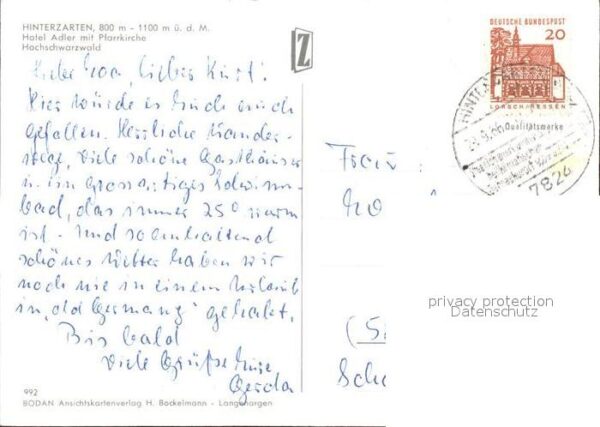 HINTERZARTEN, 800 m - 1100 m ü. d. M.
Hotel Adler mit Pfarrkirche
Hochschwarzwald
Z
lieber Kurt!
Hier würde es Euch auch
gefallen. Herrliche Wander-
wege, viele schöne Gasthäuser
u. ein grossartiges Schwimm-
bad, das immer 25° warm
ist. Und so anhaltend
schönes Wetter haben wir
noch nie in einem Urlaub
in "old Germany" gehabt.
Bis bald
Viele Grüße Eure
Gerda
992
BODAN Ansichtskartenverlag H. Bockelmann - Langenargen
DEUTSCHE BUNDESPOST
20
LORSCH/HESSEN
7824
privacy protection
Datenschutz